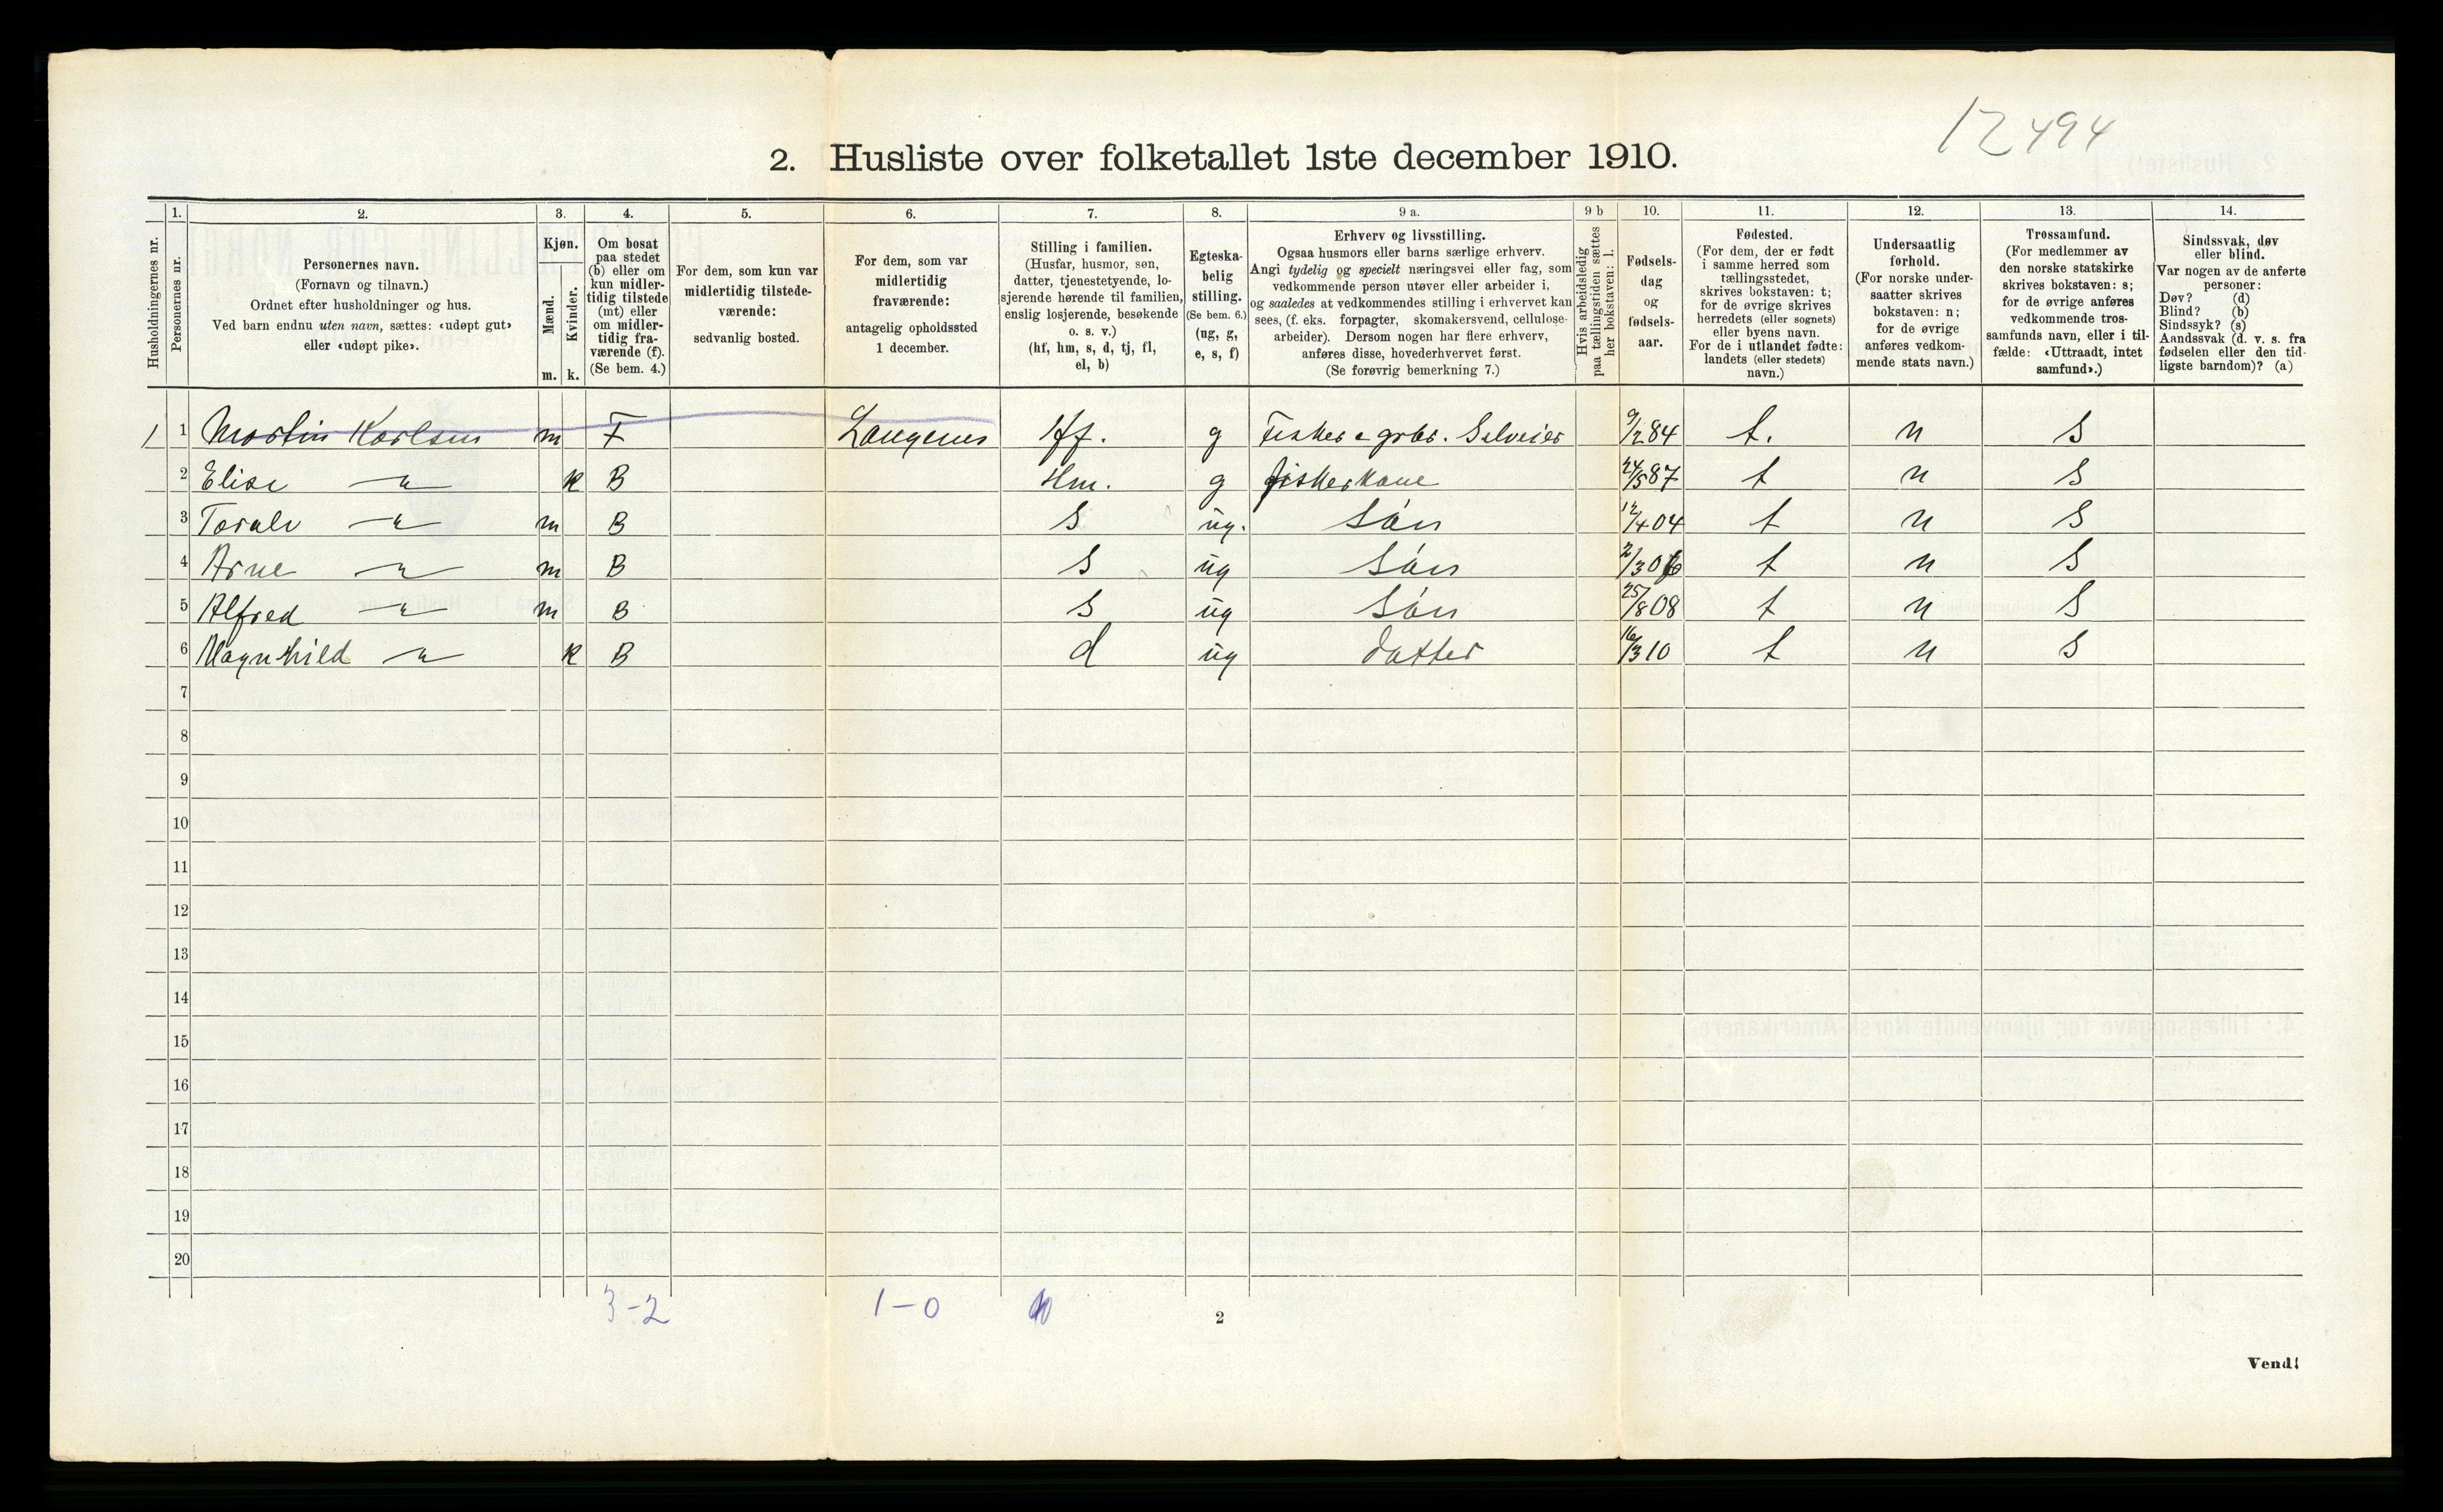 12494
2. Husliste over folketallet 1ste december 1910.
1. 2. 3. 4. 5. 6. 7. 8. 9 a. 9 b 10. 11. 12. 13. 14.
Husholdningernes nr.
Personernes nr.
Personernes navn.
(Fornavn og tilnavn.)
Ordnet efter husholdninger og hus.
Ved barn endnu uten navn, sættes: «udøpt gut»
eller «udøpt pike».
Kjøn.
Mænd.
Kvinder.
m. k.
Om bosat
paa stedet
(b) eller om
kun midler-
tidig tilstede
(mt) eller
om midler-
tidig fra-
værende (f).
(Se bem. 4.)
For dem, som kun var
midlertidig tilstede-
værende:
sedvanlig bosted.
For dem, som var
midlertidig
fraværende:
antagelig opholdssted
1 december.
Stilling i familien.
(Husfar, husmor, søn,
datter, tjenestetyende, lo-
sjerende hørende til familien,
enslig losjerende, besøkende
o. s. v.)
(hf, hm, s, d, tj, fl,
el, b)
Egteska-
belig
stilling.
(Se bem. 6.)
(ug, g,
e, s, f)
Erhverv og livsstilling.
Ogsaa husmors eller barns særlige erhverv.
Angi tydelig og specielt næringsvei eller fag, som
vedkommende person utøver eller arbeider i,
og saaledes at vedkommendes stilling i erhvervet kan
sees, (f. eks. forpagter, skomakersvend, cellulose-
arbeider). Dersom nogen har flere erhverv,
anføres disse, hovederhvervet først.
(Se forøvrig bemerkning 7.)
Hvis arbeidsledig
paa tællingstiden sættes
her bokstaven: l.
Fødsels-
dag
og
fødsels-
aar.
Fødested.
(For dem, der er født
i samme herred som
tællingsstedet,
skrives bokstaven: t;
for de øvrige skrives
herredets (eller sognets)
eller byens navn.
For de i utlandet fødte:
landets (eller stedets)
navn.)
Undersaatlig
forhold.
(For norske under-
saatter skrives
bokstaven: n;
for de øvrige
anføres vedkom-
mende stats navn.)
Trossamfund.
(For medlemmer av
den norske statskirke
skrives bokstaven: s;
for de øvrige anføres
vedkommende tros-
samfunds navn, eller i til-
fælde: «Uttraadt, intet
samfund».)
Sindssvak, døv
eller blind.
Var nogen av de anførte
personer:
Døv? (d)
Blind? (b)
Sindssyk? (s)
Aandssvak (d. v. s. fra
fødselen eller den tid-
ligste barndom)? (a)
1 1 Martin Karlsen m F Langenes Hf. g Fisker o grbr. Selveier 9/2 84 t. n S
2 Elise —"— k B Hm. g fiskerkone 24/5 87 t n S
3 Toralv —"— m B S ug. Søn 12/4 04 t n S
4 Arne —"— m B S ug Søn 2/3 06 t n S
5 Alfred —"— m B S ug Søn 25/8 08 t n S
6 Magnhild —"— k B d ug datter 16/3 10 t n S
7
8
9
10
11
12
13
14
15
16
17
18
19
20
3-2 1-0
2
Vend!